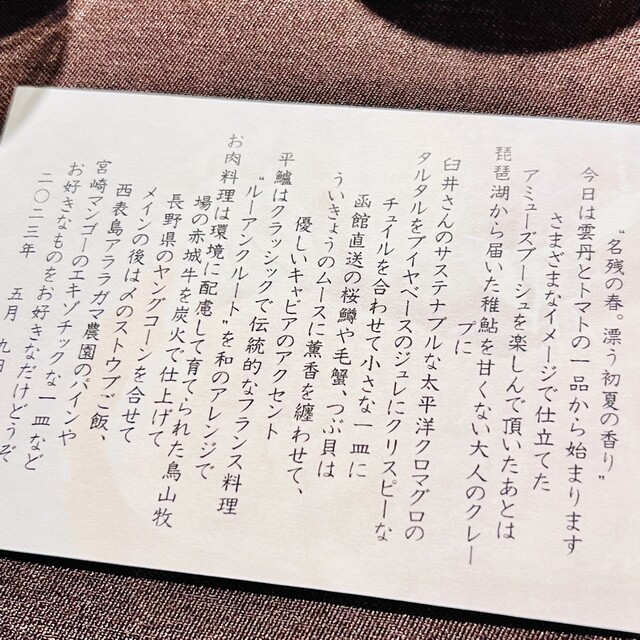 “名残の春。漂う初夏の香り”
今日は雲丹とトマトの一品から始まります
さまざまなイメージで仕立てた
アミューズブーシュを楽しんで頂いたあとは
琵琶湖から届いた稚鮎を甘くない大人のクレー
プに
臼井さんのサステナブルな太平洋クロマグロの
タルタルをブイヤベースのジュレにクリスピーな
チュイルを合わせて小さな一皿に
函館直送の桜鱒や毛蟹、つぶ貝は
ういきょうのムースに薫香を纏わせて、
優しいキャビアのアクセント
平鱸はクラッシックで伝統的なフランス料理
“ルーアンクルート”を和のアレンジで
お肉料理は環境に配慮して育てられた鳥山牧
場の赤城牛を炭火で仕上げて
長野県のヤングコーンを合せて
メインの後は〆のストウブご飯、
西表島アララガマ農園のパインや
宮崎マンゴーのエキゾチックな一皿など
お好きなものをお好きなだけどうぞ
二〇二三年 五月 九日